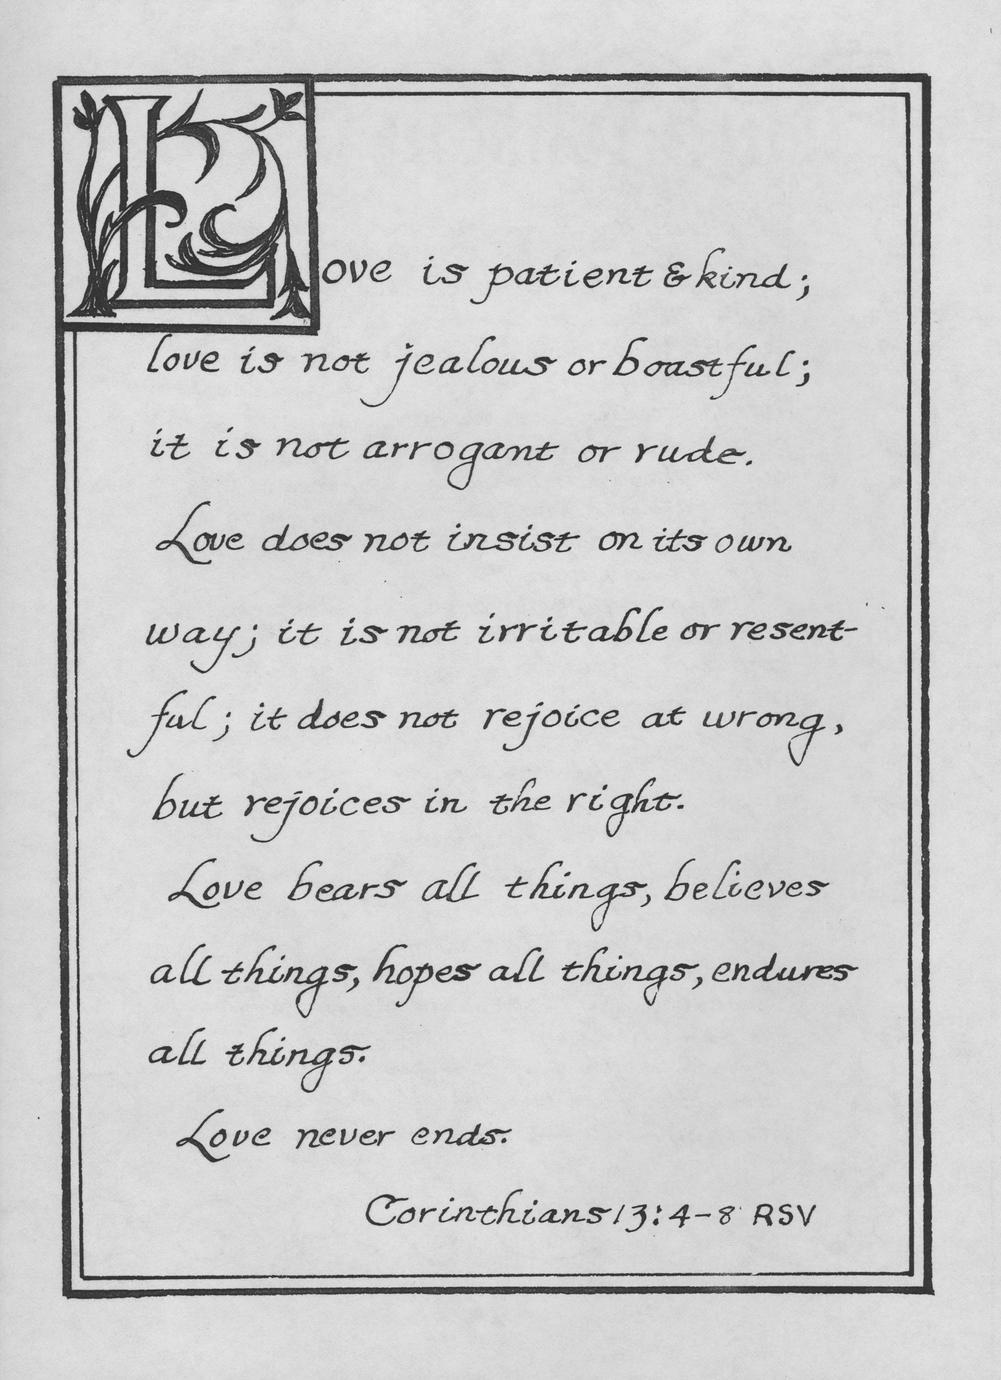 Love is patient & kind;
love is not jealous or boastful;
it is not arrogant or rude.
Love does not insist on its own
way; it is not irritable or resent-
ful; it does not rejoice at wrong,
but rejoices in the right.
Love bears all things, believes
all things, hopes all things, endures
all things.
Love never ends.
Corinthians 13:4-8 RSV